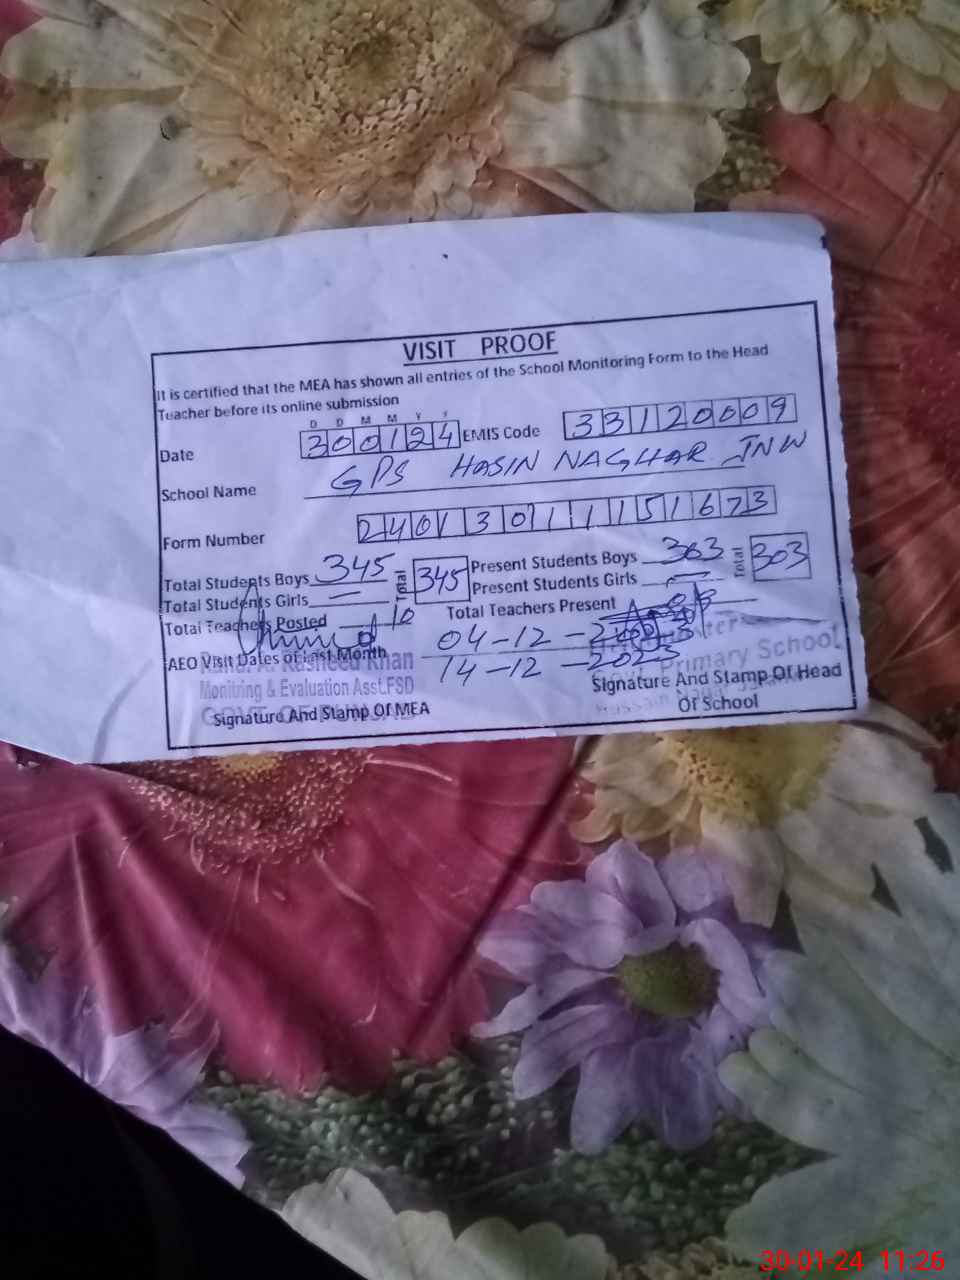 VISIT PROOF
It is certified that the MEA has shown all entries of the School Monitoring Form to the Head
Teacher before its online submission
D D M M Y Y
Date 300124 EMIS Code 33120009
School Name GPS HASIN NAGHAR JNW
Form Number 24013011151673
Total Students Boys 345 Total 345 Present Students Boys 303 Total 303
Total Students Girls — Present Students Girls —
Total Teachers Posted 10 Total Teachers Present 08
AEO Visit Dates of Last Month 04-12-2023
14-12-2023
Rasheed Khan
Monitring & Evaluation Asst.FSD
Signature And Stamp Of MEA
Primary School
Signature And Stamp Of Head
Of School
30-01-24 11:26